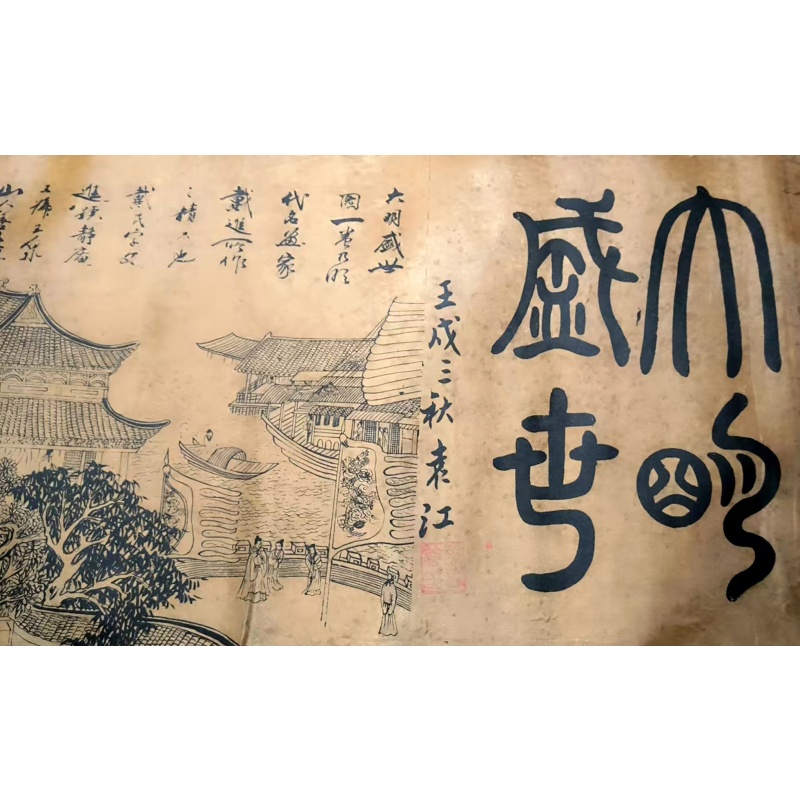 大明
盛世
壬戌三秋袁江
大明盛世
圖一卷乃明
代名畫家
戴進所作
之精品也
戴氏字文
進號靜庵
又稱玉泉
山人